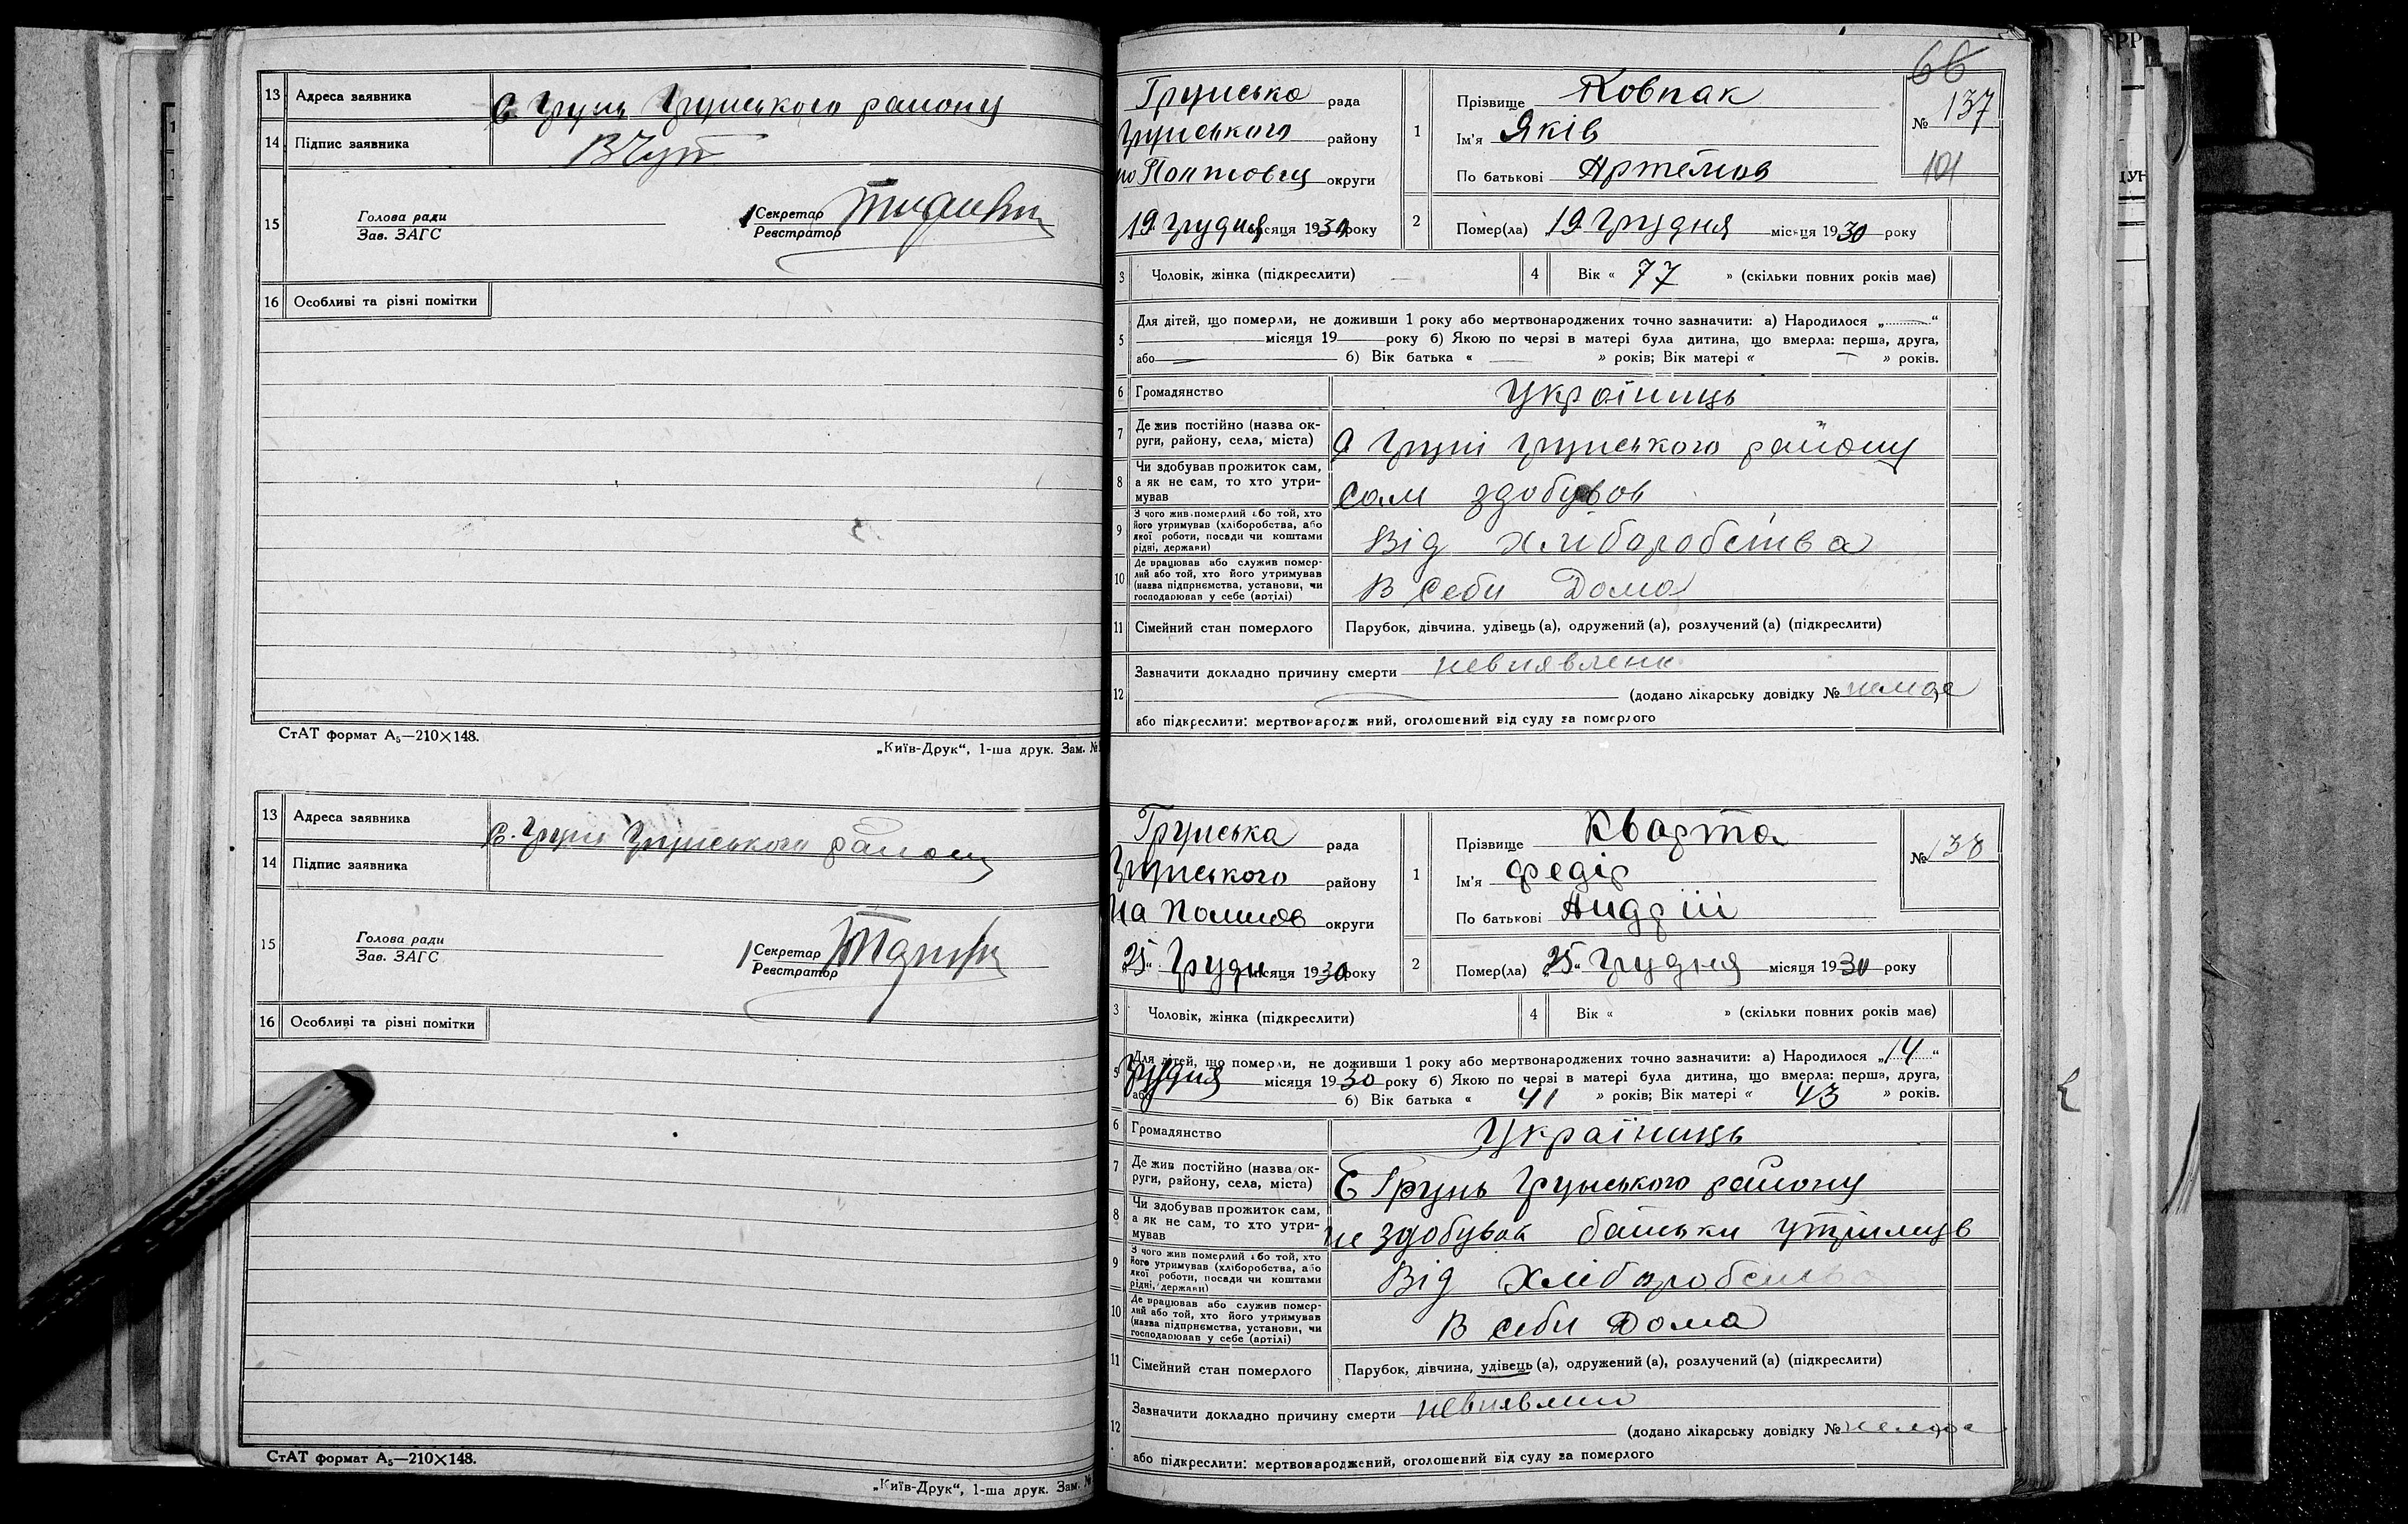 13 Адреса заявника С. Грунь Грунського району
14 Підпис заявника
15 Голова ради
Зав. ЗАГС
Секретар
Реєстратор
16 Особливі та різні помітки
СтАТ формат А₅—210×148.
„Київ-Друк“, 1-ша друк. Зам. №
13 Адреса заявника С. Грунь Грунського району
14 Підпис заявника
15 Голова ради
Зав. ЗАГС
Секретар
Реєстратор
16 Особливі та різні помітки
СтАТ формат А₅—210×148.
„Київ-Друк“, 1-ша друк. Зам. №
66
Грунська рада
Грунського району
округи
19 Грудня місяця 1930 року
1 Прізвище Ковпак
Ім'я Яків
По батькові Артемов
№ 137
101
2 Помер(ла) „19 Грудня місяця 1930 року
3 Чоловік, жінка (підкреслити)
4 Вік « 77 » (скільки повних років має)
5 Для дітей, що померли, не доживши 1 року або мертвонароджених точно зазначити: а) Народилося „ “
місяця 19 року б) Якою по черзі в матері була дитина, що вмерла: перша, друга,
або б) Вік батька « » років; Вік матері « » років.
6 Громадянство Україниць
7 Де жив постійно (назва округи, району, села, міста) С Груні Грунського району
8 Чи здобував прожиток сам, а як не сам, то хто утримував сам здобував
9 З чого жив померлий або той, хто його утримував (хліборобства, або якої роботи, посади чи коштами рідні, держави) Від хліборобства
10 Де працював або служив померлий або той, хто його утримував (назва підприємства, установи, чи господарював у себе (артілі) В себи Дома
11 Сімейний стан померлого Парубок, дівчина, удівець (а), одружений (а), розлучений (а) (підкреслити)
12 Зазначити докладно причину смерти невиявлене
(додано лікарську довідку № немає
або підкреслити: мертвонароджений, оголошений від суду за померлого
Грунська рада
Грунського району
На округи
„25“ Грудн місяця 1930 року
1 Прізвище Кварта
Ім'я Федір
По батькові Андрій
№ 138
2 Помер(ла) „25“ Грудня місяця 1930 року
3 Чоловік, жінка (підкреслити)
4 Вік « » (скільки повних років має)
5 Для дітей, що померли, не доживши 1 року або мертвонароджених точно зазначити: а) Народилося „14“
Грудня місяця 1930 року б) Якою по черзі в матері була дитина, що вмерла: перша, друга,
або б) Вік батька « 41 » років; Вік матері « 43 » років.
6 Громадянство Україниць
7 Де жив постійно (назва округи, району, села, міста) С Грунь Грунського району
8 Чи здобував прожиток сам, а як не сам, то хто утримував не здобував батьки
9 З чого жив померлий або той, хто його утримував (хліборобства, або якої роботи, посади чи коштами рідні, держави) Від хліборобства
10 Де працював або служив померлий або той, хто його утримував (назва підприємства, установи, чи господарював у себе (артілі) В себи Дома
11 Сімейний стан померлого Парубок, дівчина, удівець (а), одружений (а), розлучений (а) (підкреслити)
12 Зазначити докладно причину смерти
(додано лікарську довідку № немає
або підкреслити: мертвонароджений, оголошений від суду за померлого